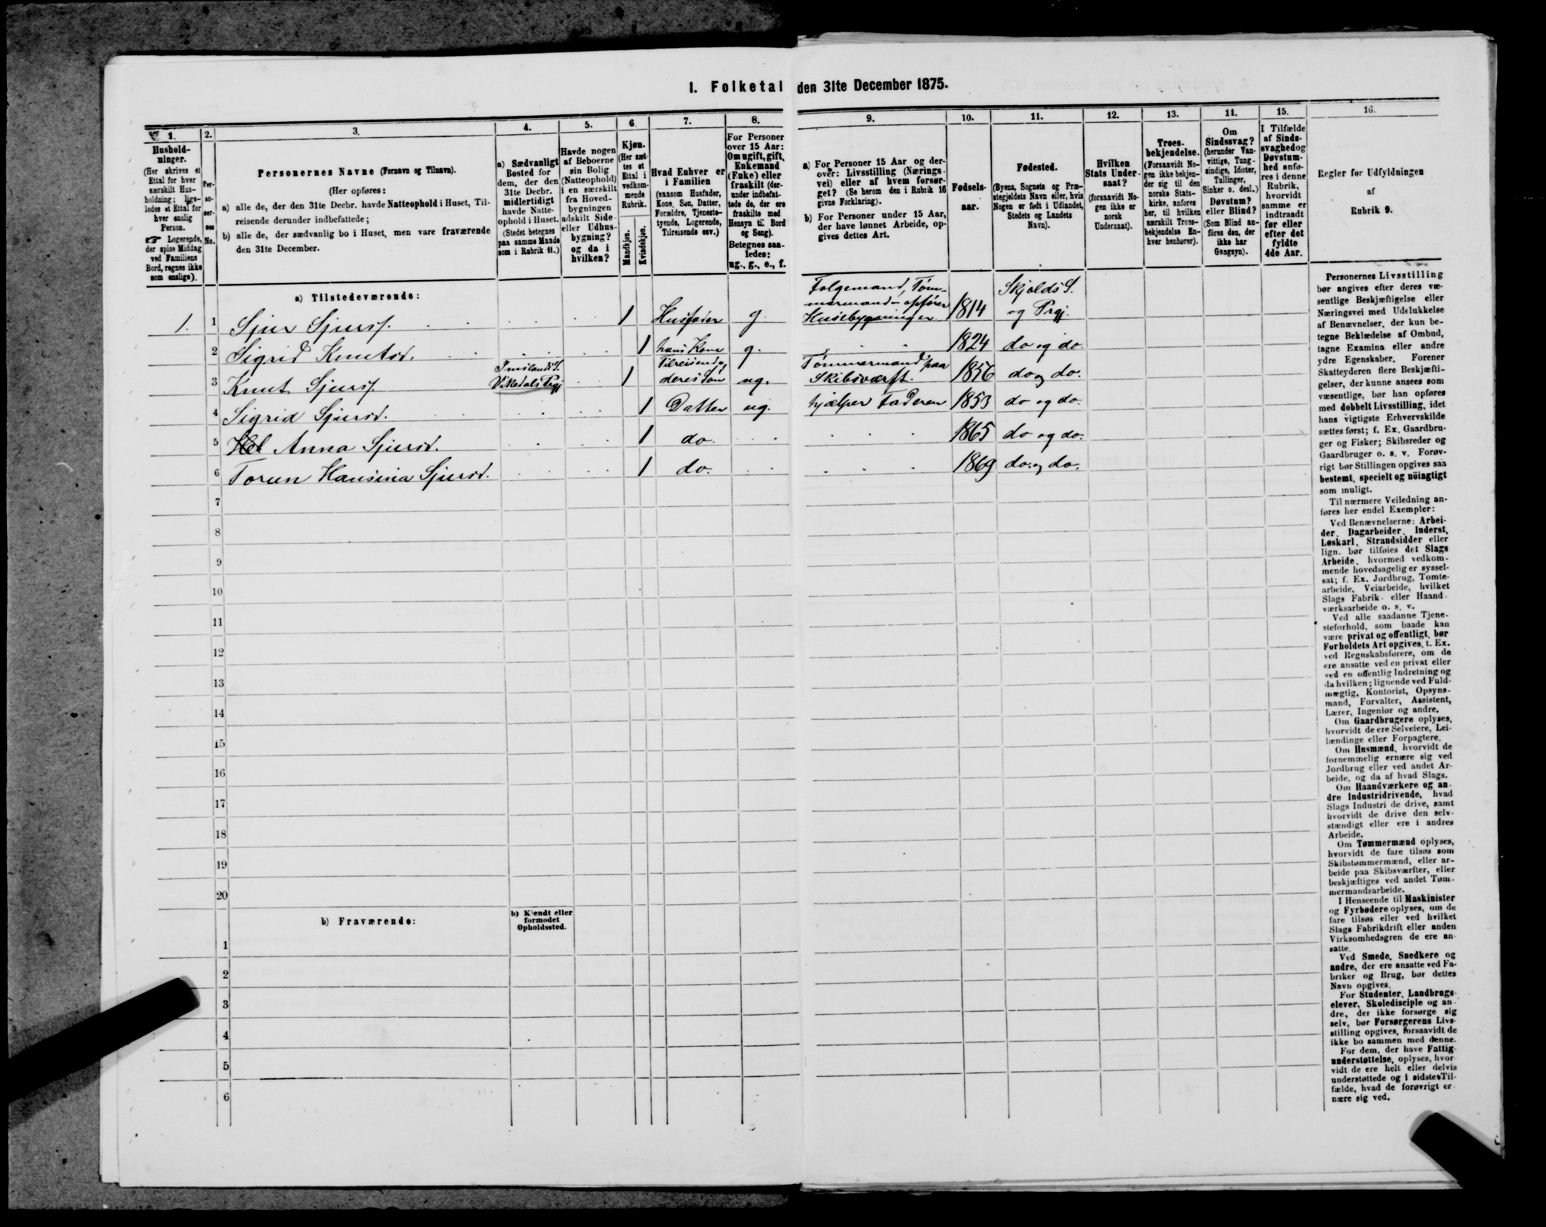 I. Folketal den 31te December 1875.
1.
2.
3.
4.
5.
6.
7.
8.
9.
10.
11.
12.
13.
14.
15.
16.
Hushold-
ninger.
(Her skrives et
Ettal for hver
særskilt Hus-
holdning; lige-
ledes et Ettal for
hver enslig
Person.
☞ Logerende,
der spise Middag
ved Familiens
Bord, regnes ikke
som enslige).
Per-
so-
ner-
nes
No.
Personernes Navne (Fornavn og Tilnavn).
(Her opføres:
a) alle de, der den 31te Decbr. havde Natteophold i Huset, Til-
reisende derunder indbefattede;
b) alle de, der sædvanlig bo i Huset, men vare fraværende
den 31te December.
a) Sædvanligt
Bosted for
dem, der den
31te Decbr.
midlertidigt
havde Natte-
ophold i Huset.
(Stedet betegnes
paa samme Maade
som i Rubrik 11.)
Havde nogen
af Beboerne
sin Bolig
(Natteophold)
i en særskilt
fra Hoved-
bygningen
adskilt Side-
eller Udhus-
bygning?
og da i
hvilken?
Kjøn.
(Her sæt-
tes et
Ettal i
vedkom-
mende
Rubrik.
Mandkjøn.
Kvindekjøn.
Hvad Enhver er
i Familien
(saasom Husfader,
Kone, Søn, Datter,
Forældre, Tjeneste-
tyende, Logerende,
Tilreisende osv.)
For Personer
over 15 Aar:
Om ugift, gift,
Enkemand
(Enke) eller
fraskilt (der-
under indbefat-
tede de, der ere
fraskilte med
Hensyn til Bord
og Seng).
Betegnes saa-
ledes:
ug., g., e., f.
a) For Personer 15 Aar og der-
over: Livsstilling (Nærings-
vei) eller af hvem forsør-
get? (Se herom den i Rubrik 16
givne Forklaring).
b) For Personer under 15 Aar,
der have lønnet Arbeide, op-
gives dettes Art.
Fødsels-
aar.
Fødested.
(Byens, Sognets og Præ-
stegjeldets Navn eller, hvis
Nogen er født i Udlandet,
Stedets og Landets
Navn).
Hvilken
Stats Under-
saat?
(forsaavidt No-
gen ikke er
norsk
Undersaat).
Troes-
bekjendelse.
(Forsaavidt No-
gen ikke bekjen-
der sig til den
norske Stats-
kirke, anføres
her, til hvilken
særskilt Troes-
bekjendelse En-
hver henhører).
Om
Sindssvag?
(herunder Van-
vittige, Tung-
sindige, Idioter,
Tullinger,
Sinker o. desl.)
Døvstum?
eller Blind?
(Som Blind an-
føres den, der
ikke har
Gangsyn).
I Tilfælde
af Sinds-
svaghed og
Døvstum-
hed anfø-
res i denne
Rubrik,
hvorvidt
samme er
indtraadt
før eller
efter det
fyldte
4de Aar.
Regler for Udfyldningen
af
Rubrik 9.
a) Tilstedeværende:
1. 1 Sjur Sjurss. 1 Husfader g. Folgemand, Tøm-
mermand - opfører
Husebygninger 1814 Skjolds S.
og Prgj.
2 Sigrid Knutsd. 1 hans Kone g. 1824 do og do.
3 Knut Sjurss. Imslands S.
Vikedals Prgj 1 Tilreisende,
deres Søn ug. Tømmermand paa
Skibsværft. 1856 do og do.
4 Sigrid Sjursd. 1 Datter ug. hjælper Faderen 1853 do og do.
5 Anna Sjursd. 1 do. 1865 do og do.
6 Torun Hansina Sjursd. 1 do. 1869 do. og do.
7
8
9
10
11
12
13
14
15
16
17
18
19
20
b) Fraværende:
b) Kjendt eller
formodet
Opholdssted.
1
2
3
4
5
6
Personernes Livsstilling
bør angives efter deres væ-
sentlige Beskjæftigelse eller
Næringsvei med Udelukkelse
af Benævnelser, der kun be-
tegne Beklædelse af Ombud,
tagne Examina eller andre
ydre Egenskaber. Forener
Skatteyderen flere Beskjæfti-
gelser, der kunne ansees som
væsentlige, bør han opføres
med dobbelt Livsstilling, idet
hans vigtigste Erhvervskilde
sættes først; f. Ex. Gaardbru-
ger og Fisker; Skibsreder og
Gaardbruger o. s. v. Forøv-
rigt bør Stillingen opgives saa
bestemt, specielt og nöiagtigt
som muligt.
Til nærmere Veiledning an-
føres her endel Exempler:
Ved Benævnelserne: Arbei-
der, Dagarbeider, Inderst,
Løskarl, Strandsidder eller
lign. bør tilføies det Slags
Arbeide, hvormed vedkom-
mende hovedsagelig er syssel-
sat; f. Ex. Jordbrug, Tomte-
arbeide, Veiarbeide, hvilket
Slags Fabrik- eller Haand-
værksarbeide o. s. v.
Ved alle saadanne Tjene-
steforhold, som baade kan
være privat og offentligt, bør
Forholdets Art opgives, t. Ex.
ved Regnskabsførere, om de
ere ansatte ved en privat eller
ved en offentlig Indretning og
da hvilken; lignende ved Fuld-
mægtig, Kontorist, Opsyns-
mand, Forvalter, Assistent,
Lærer, Ingeniør og andre.
Om Gaardbrugere oplyses,
hvorvidt de ere Selveiere, Lei-
lændinge eller Forpagtere.
Om Husmænd, hvorvidt de
fornemmelig ernære sig ved
Jordbrug eller ved andet Ar-
beide, og da af hvad Slags.
Om Haandværkere og an-
dre Industridrivende, hvad
Slags Industri de drive, samt
hvorvidt de drive den selv-
stændigt eller ere i andres
Arbeide.
Om Tømmermænd oplyses,
hvorvidt de fare tilsøs som
Skibstømmermænd, eller ar-
beide paa Skibsværfter, eller
beskjæftiges ved andet Tøm-
mermandsarbeide.
I Henseende til Maskinister
og Fyrbødere oplyses, om de
fare tilsøs eller ved hvilket
Slags Fabrikdrift eller anden
Virksomhedsgren de ere an-
satte.
Ved Smede, Snedkere og
andre, der ere ansatte ved Fa-
briker og Brug, bør dettes
Navn opgives.
For Studenter, Landbrugs-
elever, Skoledisciple og an-
dre, der ikke forsørge sig
selv, bør Forsørgerens Livs-
stilling opgives, forsaavidt de
ikke bo sammen med denne.
For dem, der have Fattig-
understøttelse, oplyses, hvor-
vidt de ere helt eller delvis
understøttede og i sidste Til-
fælde, hvad de forøvrigt er-
nære sig ved.